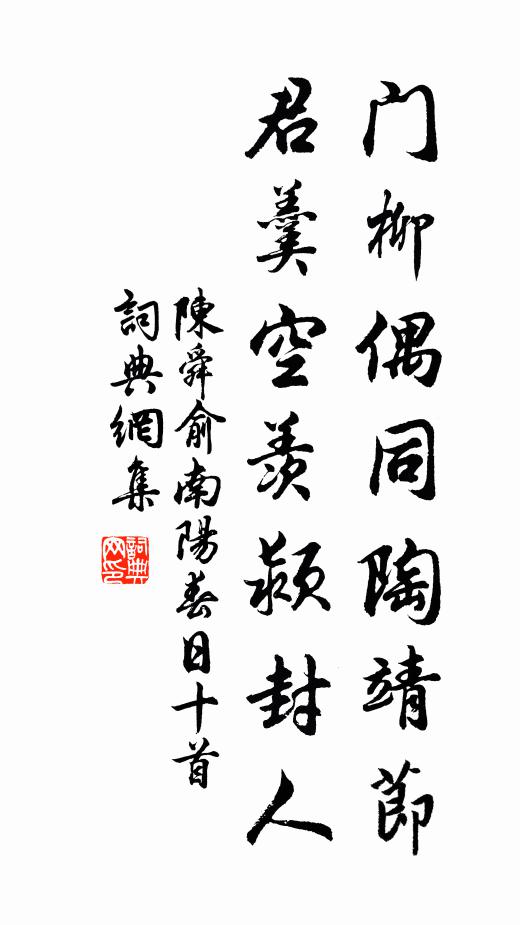 門柳偶同陶靖節
君羹空羨潁封人
陳舜俞南陽春日十首
詞典網集
詞典网印